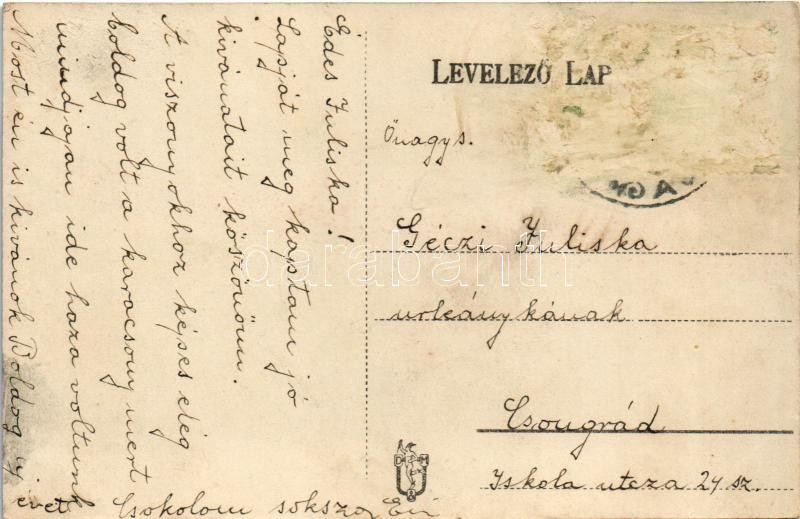 Édes Juliska!
Lapját meg kaptam jó
kivánatait köszönöm.
A viszonyokhoz képes elég
boldog volt a karacsony mert
mindjajan ide haza voltunk
Most én is kivánok Boldog uj
évet Csokolom sokszor
LEVELEZŐ LAP
Önagys.
Géczi Juliska
urleánykának
Csongrád
Iskola utcza 24 sz.
darabanth
D M